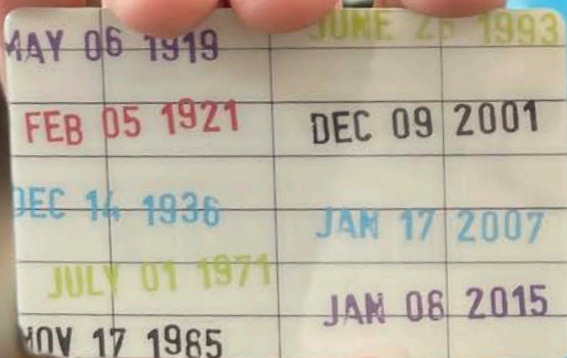 MAY 06 1919
FEB 05 1921
DEC 14 1936
JULY 01 1971
NOV 17 1985
JUNE 1993
DEC 09 2001
JAN 17 2007
JAN 06 2015